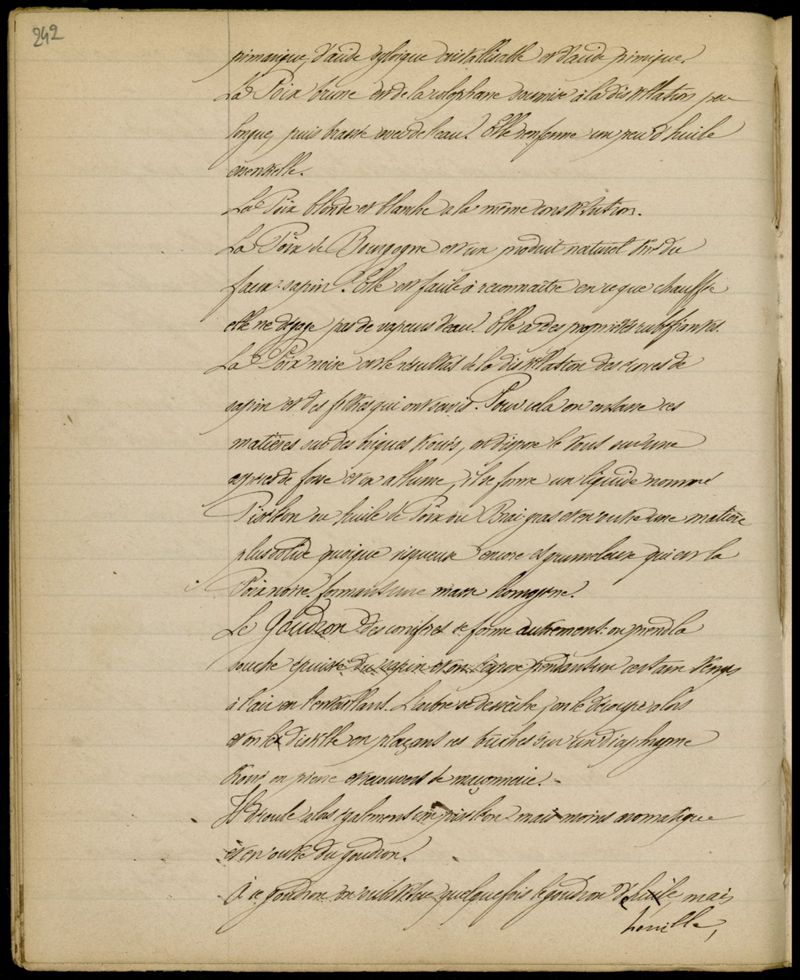 242
pimarique, d'acide sylvique cristallisable et d'acide pinique.
La Poix brune est de la colophane soumise à la distillation peu
longue, puis brassée avec de l'eau. Elle renferme un peu d'huile
essentielle.
La Poix blonde et blanche a la même constitution.
La Poix de Bourgogne est un produit naturel tiré du
faux-sapin. Elle est facile à reconnaitre en ce que chauffée
elle ne dégage pas de vapeurs d'eau. Elle a des propriétés rubéfiantes.
La Poix noire est le résultat de la distillation des torres de
sapin et des filtres qui ont servi. Pour cela on entasse ces
matières sur des briques trouées, on dispose le tout sur une
espèce de fosse et on allume, il se forme un liquide nommé
Pisséléon ou huile de Poix ou Brai gras et en outre une matière
plus solide quoique visqueuse encore et grumeleuse qui est la
Poix noire formant une masse homogène.
Le Goudron des conifères se forme autrement: on prend la
souche épuisée du sapin et on l'expose pendant un certain temps
à l'air en l'entaillant. L'arbre se dessèche, on le découpe alors
et on le distille en plaçant ces bûches sur un diaphragme
troué en pierre et recouvert de maçonnerie.
Il s'écoule alors également un pisséléon mais moins aromatique
et en outre du goudron.
À ce goudron on substitue quelquefois le goudron de houille mais
houille,